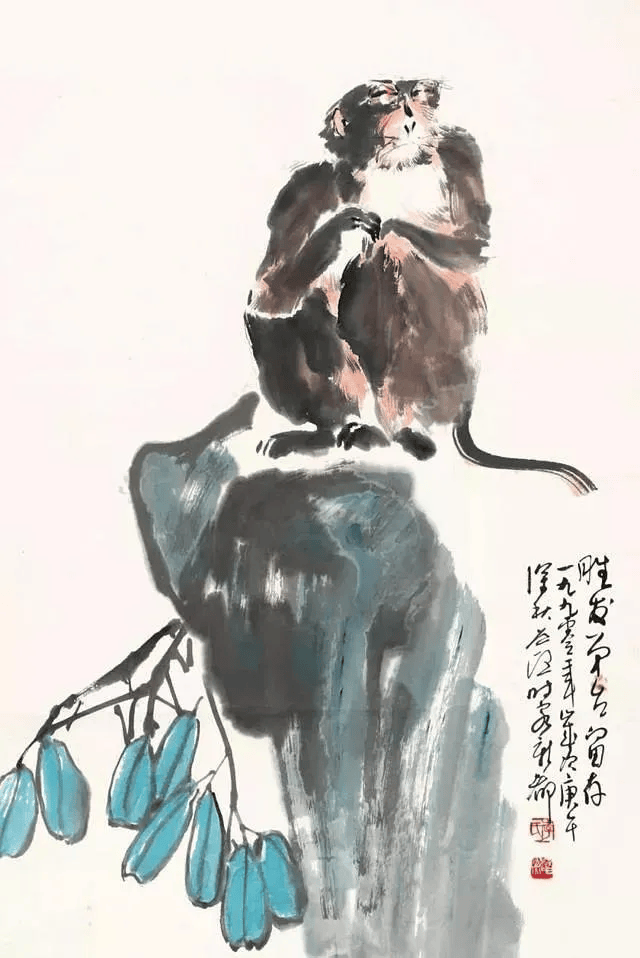 胜发弟台留存
一九九零年岁次庚午
深秋时客新都